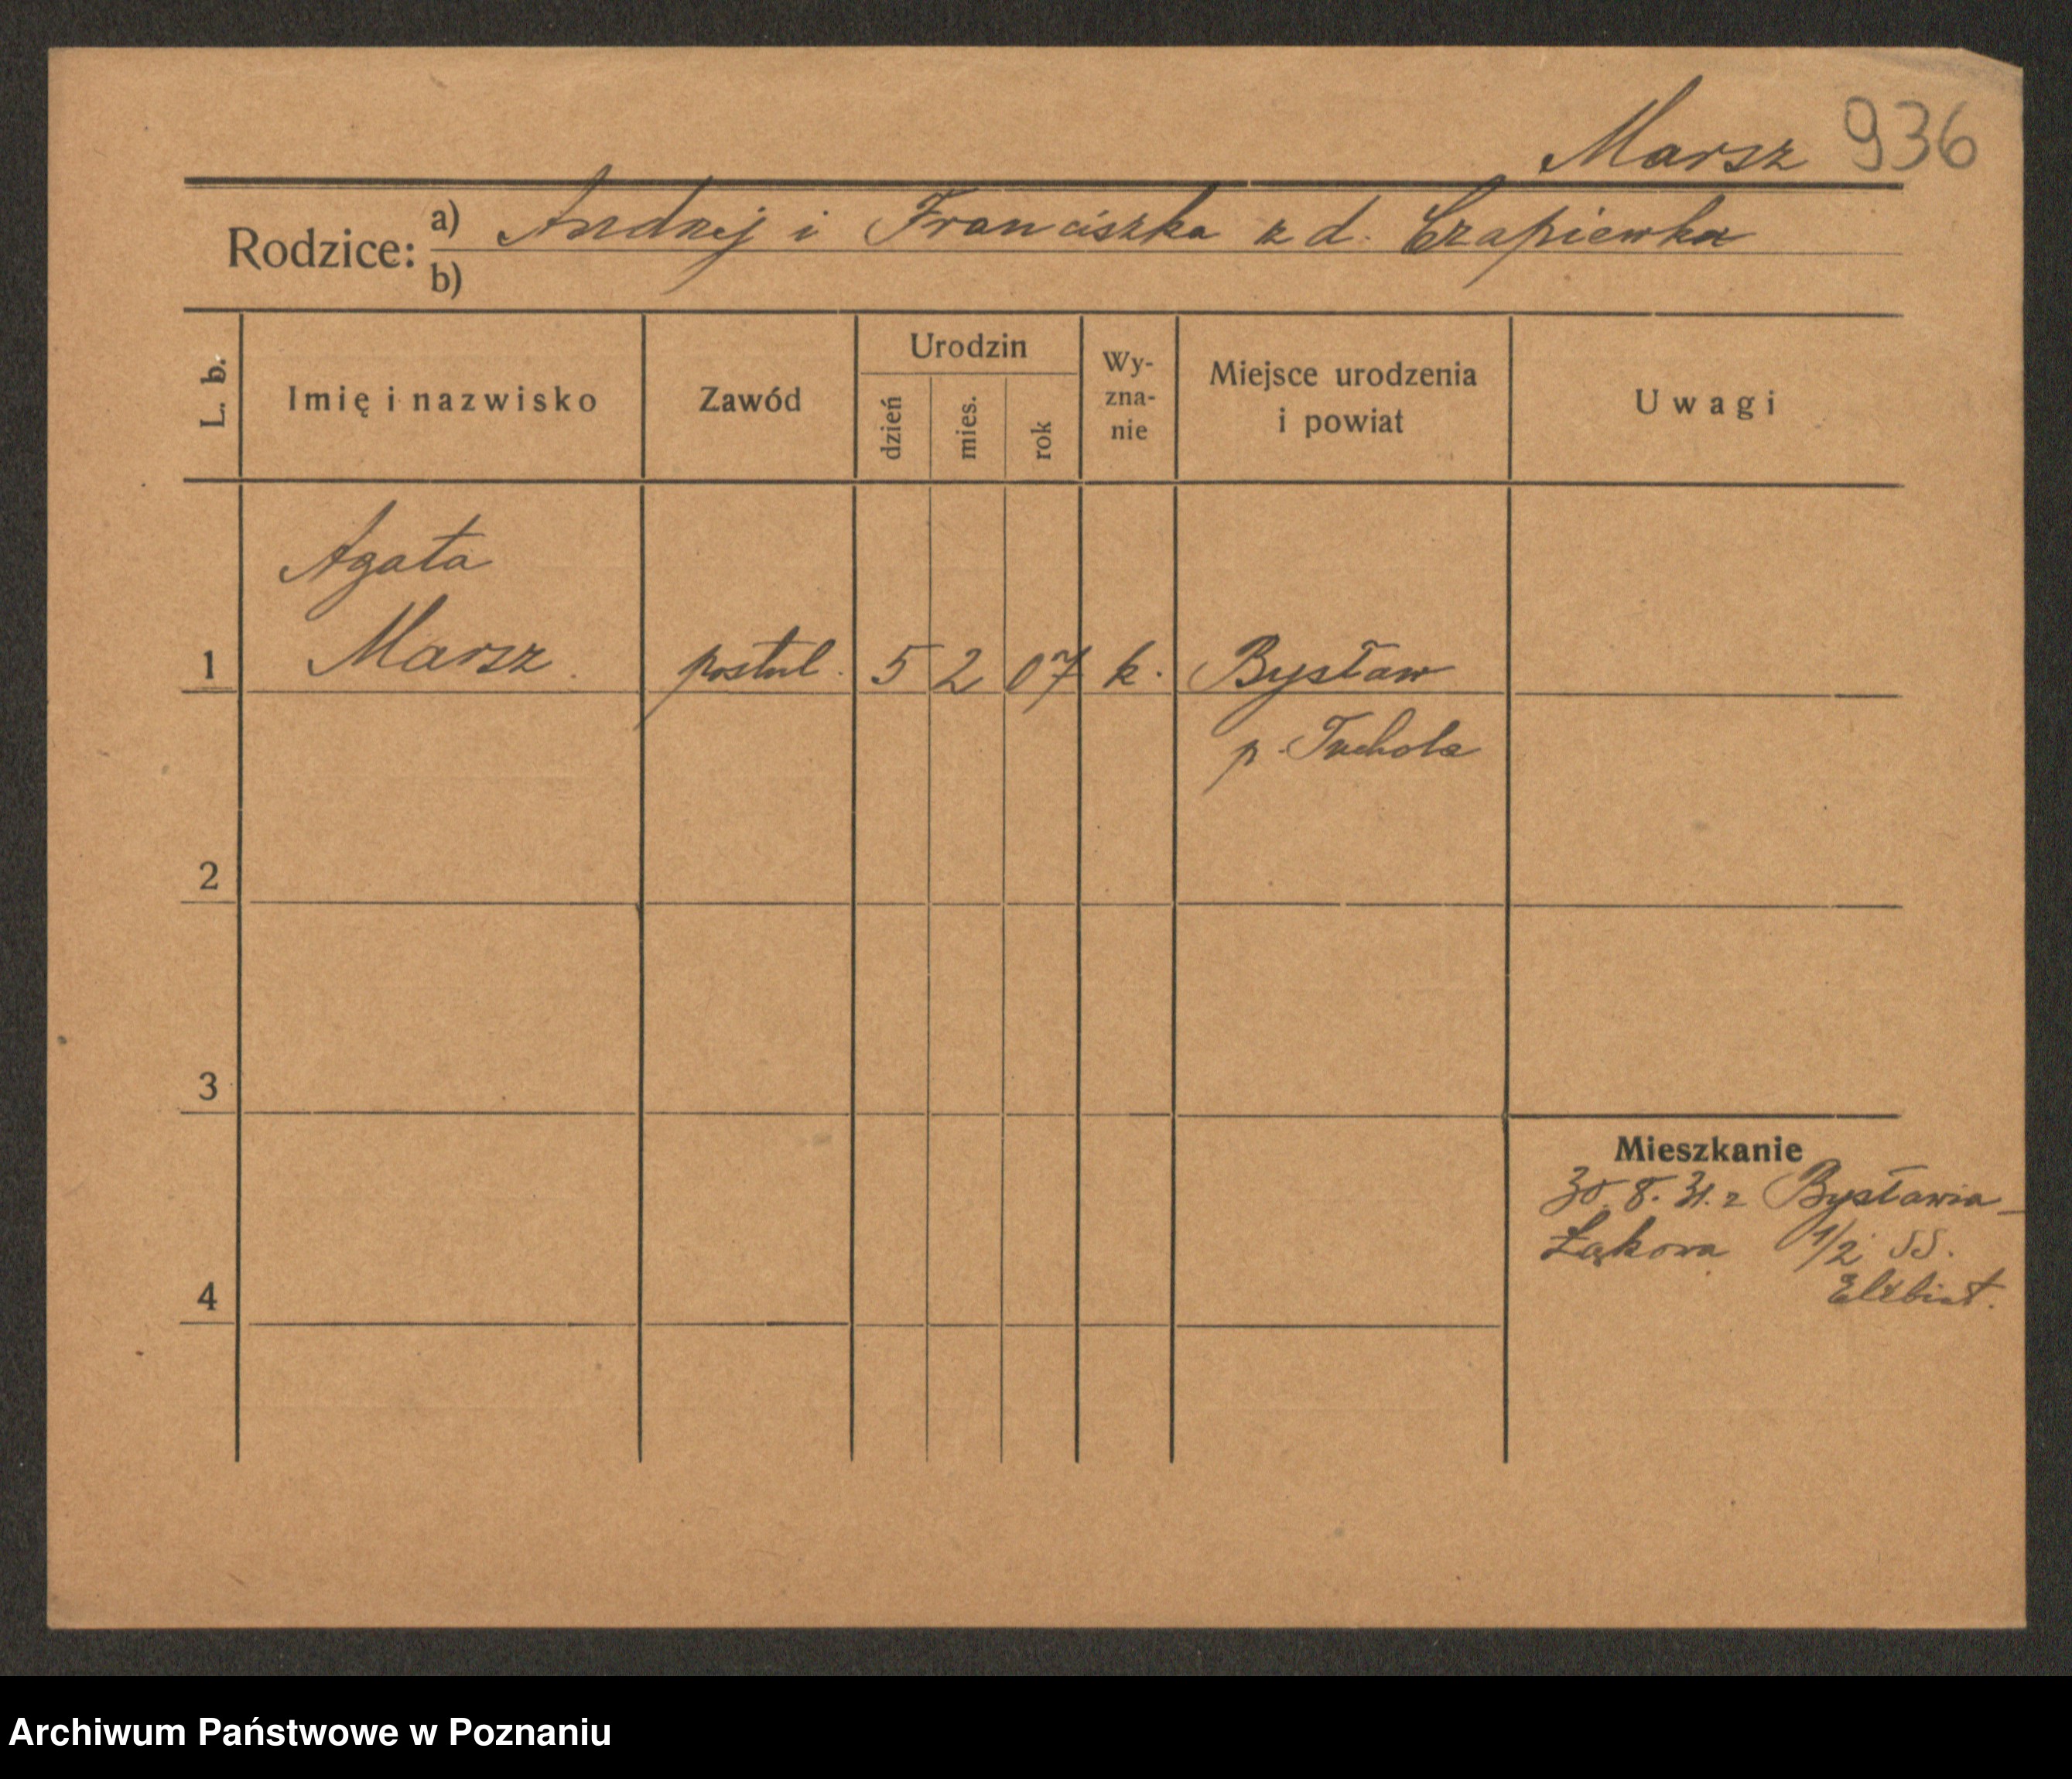 Marsz 936
Rodzice: a) Andrzej i Franciszka z d. Czapiewka
b)
L. b. Imię i nazwisko Zawód Urodzin dzień mies. rok Wy-zna-nie Miejsce urodzenia i powiat Uwagi
Agata
1 Marsz. postul. 5 2 07 k. Bysław
p. Tuchola
2
3
Mieszkanie
30. 8. 31. z Bysławia -
Łąkowa 1/2 SS.
Elżbiet.
4
Archiwum Państwowe w Poznaniu